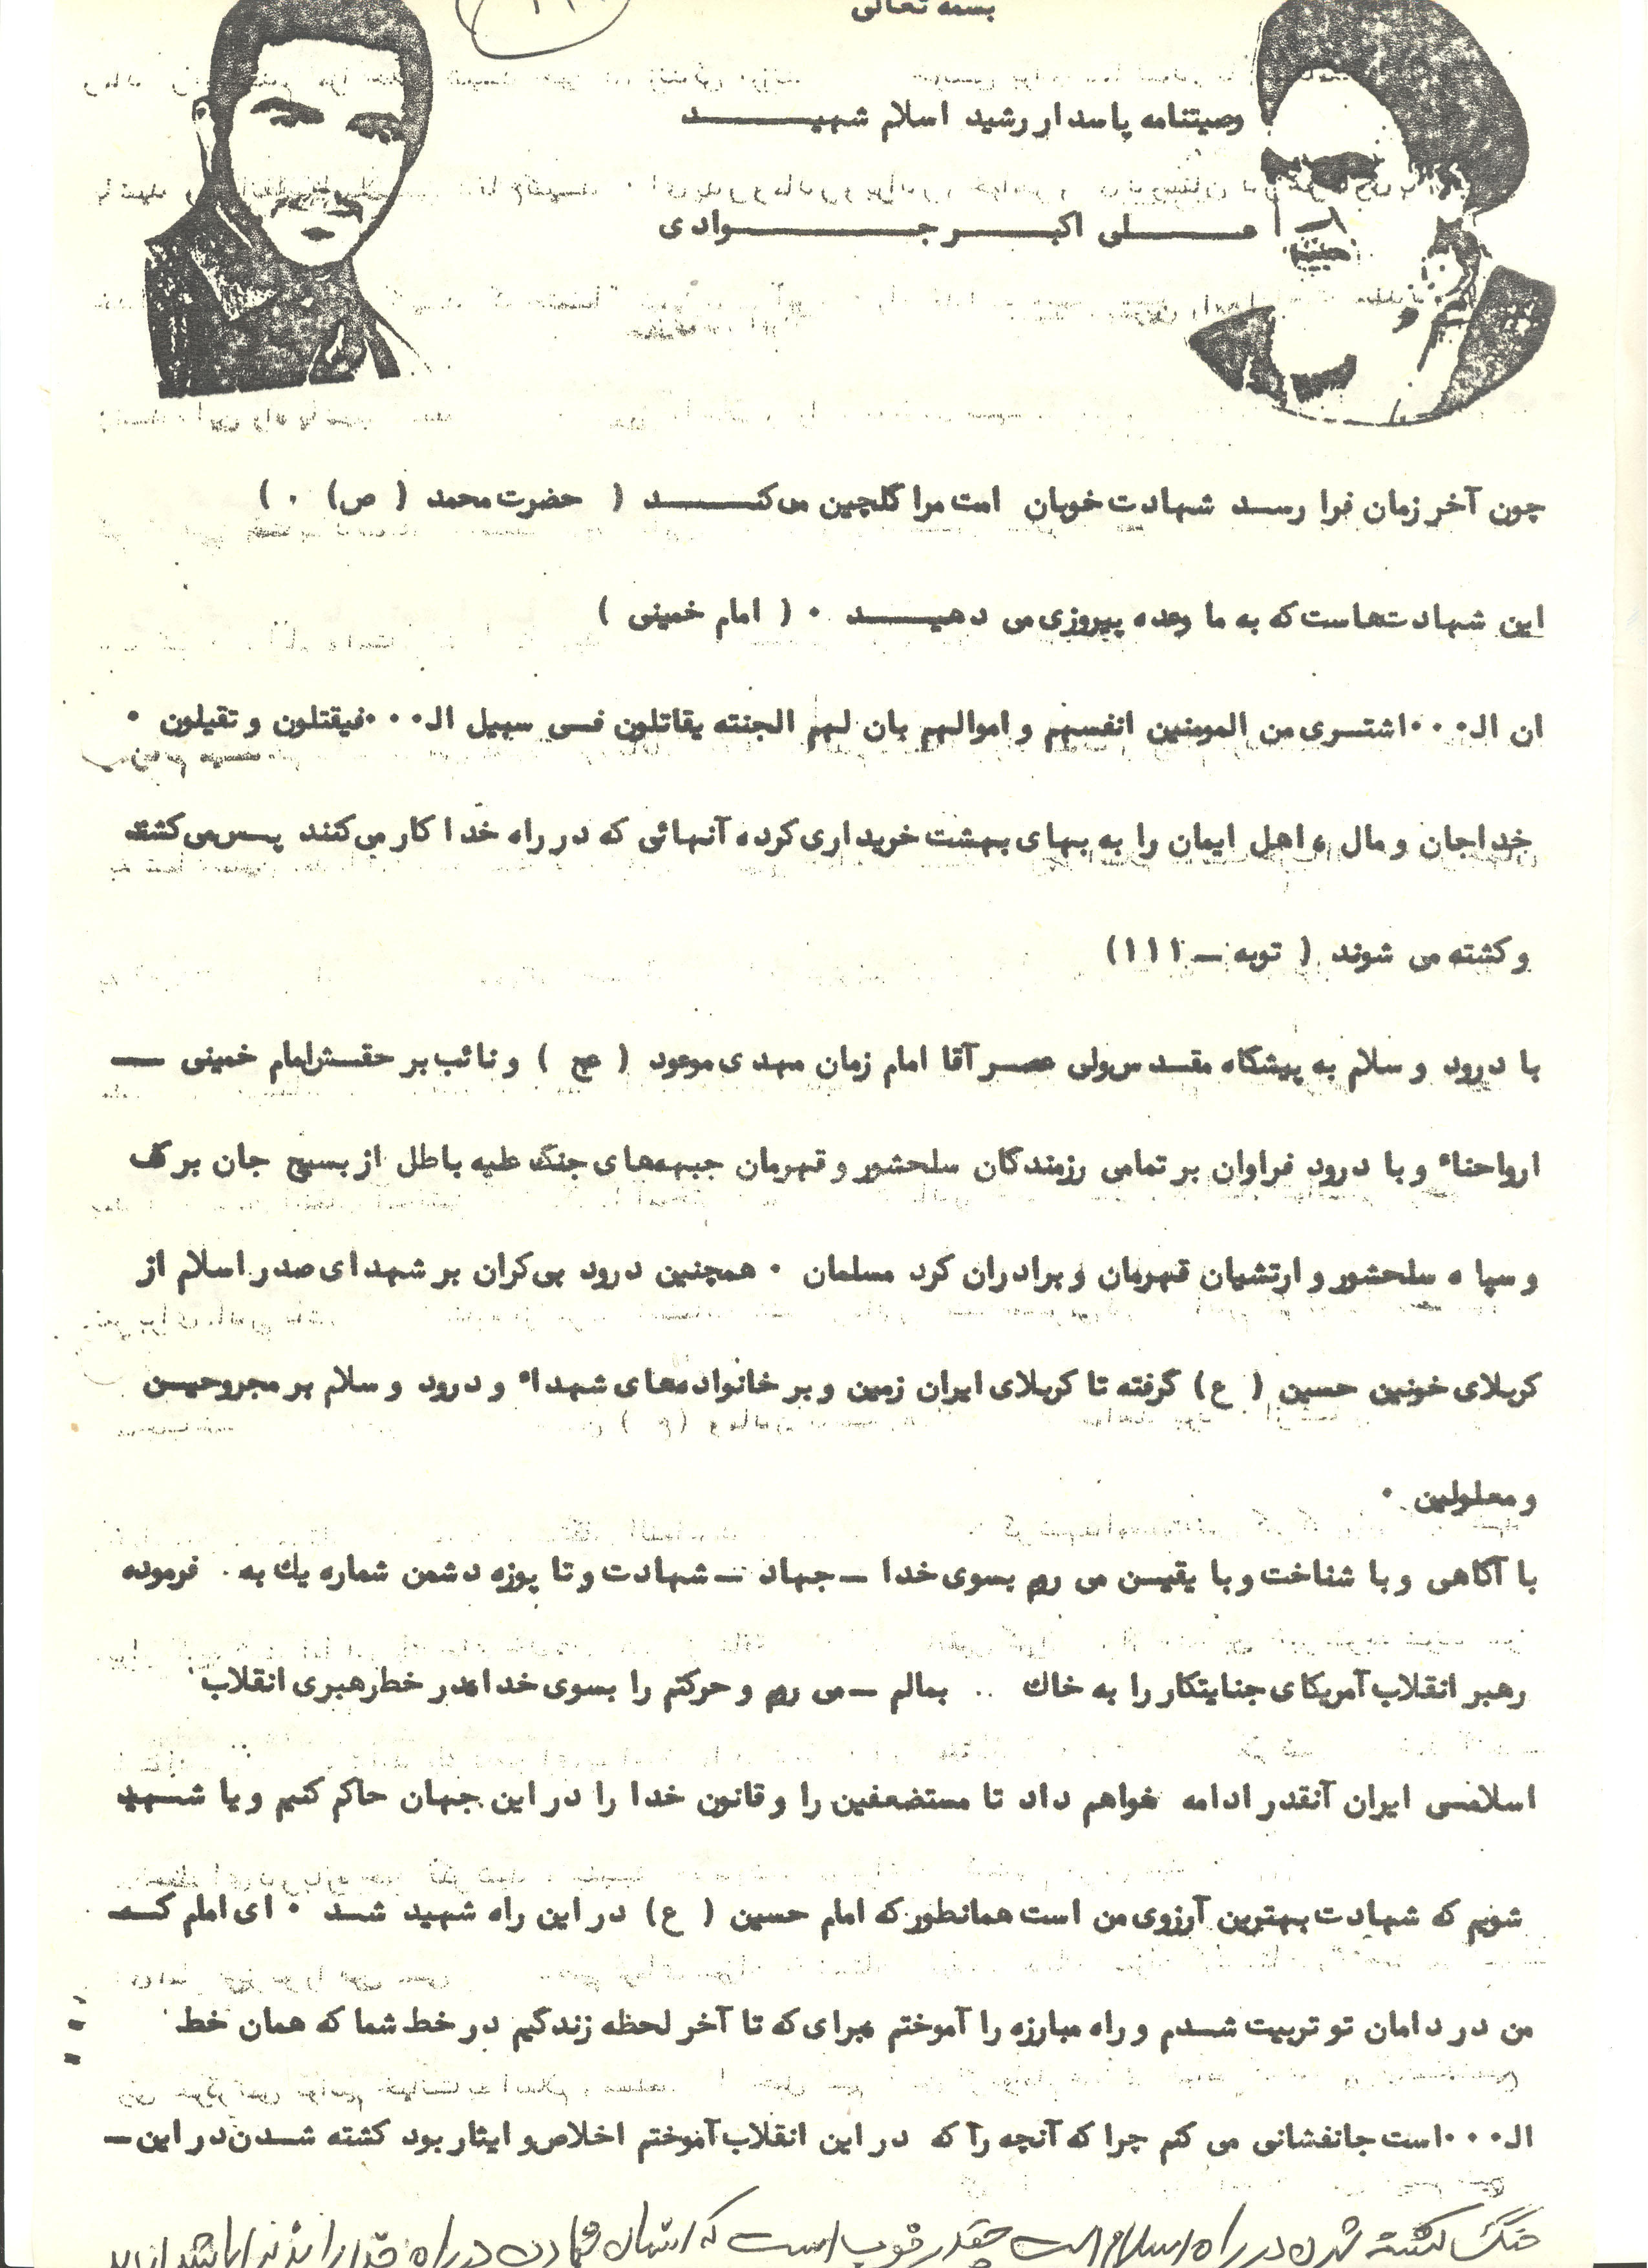 بسمه تعالی
وصیتنامه پاسدار رشید اسلام شهیـــــــد
عـــــلی اکبـــــر جـــــــوادی
چون آخر زمان فرا رسـد شهادت خوبان امت مرا گلچین می‌کـــــد ( حضرت محمد ( ص) ۰ )
این شهادتهاست که به ما وعده پیروزی می دهیـــــد ۰ ( امام خمینی )
ان الـ۰۰۰اشتـری من المومنین انفسهم و اموالهم بان لهم الجنته یقاتلون فـی سبیل الـ۰۰۰فیقتلون و تقیلون ۰
خدا جان و مال ء اهل ایمان را به بهای بهشت خریداری کرده آنهائی که در راه خدا کار می‌کنند پـس می‌کشند
و کشته می شوند ( توبه ــ ۱۱۱)
با درود و سلام به پیشگاه مقـدس ولی عصـر آقا امام زمان مهدی موعود ( عج ) و نائب بر حقـش امام خمینی ــ
ارواحناء و با درود فراوان بر تمامی رزمندگان سلحشور و قهرمان جبهه‌های جنگ علیه باطل از بسیج جان بر کف
و سپاه سلحشور و ارتشیان قهرمان و برادران کرد مسلمان ۰ همچنین درود بی‌کران بر شهدای صدر اسلام از
کربلای خونین حسین ( ع) گرفته تا کربلای ایران زمین و بر خانواده‌های شهداء و درود و سلام بر مجروحیـن
و معلولین ۰
با آگاهی و با شناخت و با یقیـن می روم بسوی خدا ــ جهاد ــ شهادت و تا پوزه دشمن شماره یك به . فرموده
رهبر انقلاب آمریکای جنایتکار را به خاك .. بمالم ــ می روم و حرکتم را بسوی خدا در خط رهبری انقلاب
اسلامـی ایران آنقدر ادامه خواهم داد تا مستضعفین را و قانون خدا را در این جهان حاکم کنیم و یا شـهید
شویم که شهادت بهترین آرزوی من است همانطور که امام حسین ( ع) در این راه شهید شـد ۰ ای امام کـه
من در دامان تو تربیت شـدم و راه مبارزه را آموختم برای که تا آخر لحظه زندگیم در خط شما که همان خط
الـ۰۰۰است جانفشانی می کنم چرا که آنچه را که در این انقلاب آموختم اخلاص و ایثار بود کشته شـدن در این ــ
جنگ کشته شدن در راه اسلام است چقدر خوب است که انسان در راه خدا